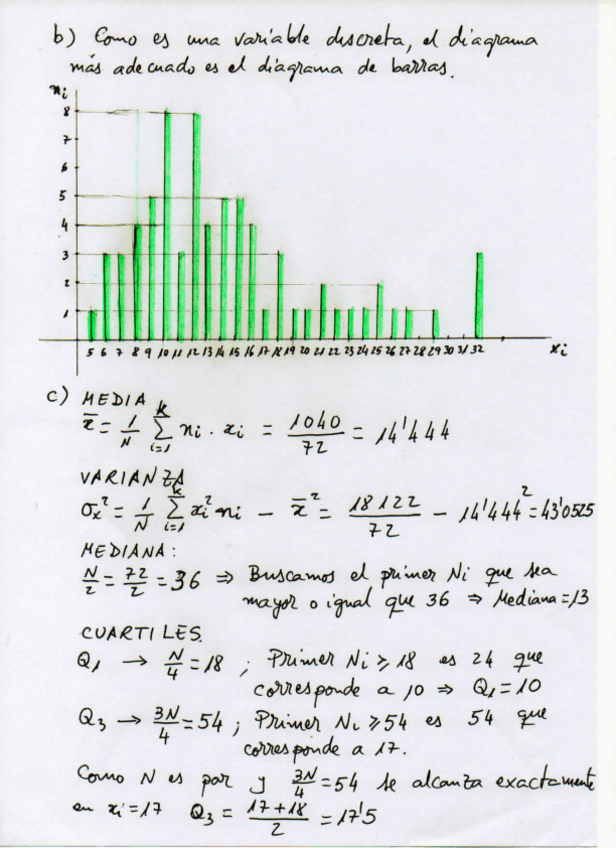 b) Como es una variable discreta, el diagrama
más adecuado es el diagrama de barras.
ni
8
7
6
5
4
3
2
1
5 6 7 8 9 10 11 12 13 14 15 16 17 18 19 20 21 22 23 24 25 26 27 28 29 30 31 32 xi
c) MEDIA
x̄ = 1/N ∑ᵢ₌₁ᵏ ni · xi = 1040/72 = 14'444
VARIANZA
σx² = 1/N ∑ᵢ₌₁ᵏ xi² ni − x̄² = 18122/72 − 14'444² = 43'0525
MEDIANA:
N/2 = 72/2 = 36 ⇒ Buscamos el primer Ni que sea
mayor o igual que 36 ⇒ Mediana = 13
CUARTILES.
Q₁ → N/4 = 18 ; Primer Ni ≥ 18 es 24 que
corresponde a 10 ⇒ Q₁ = 10
Q₃ → 3N/4 = 54 ; Primer Ni ≥ 54 es 54 que
corresponde a 17.
Como N es par y 3N/4 = 54 se alcanza exactamente
en xi = 17 Q₃ = 17+18/2 = 17'5